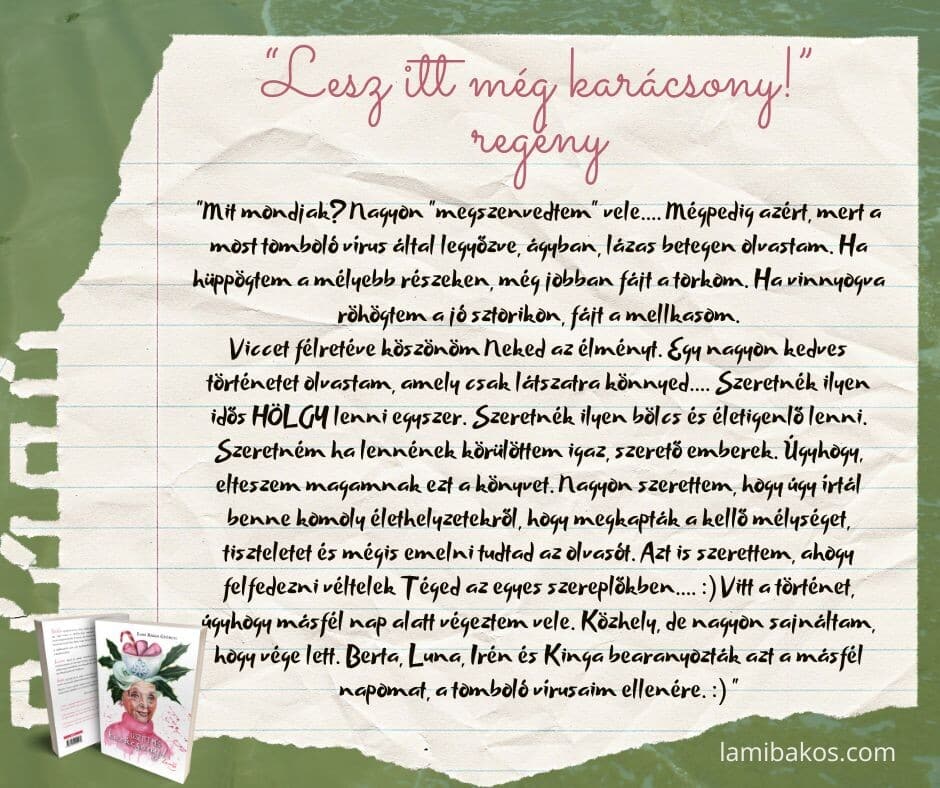 “Lesz itt még karácsony!”
regény
"Mit mondjak? Nagyon "megszenvedtem" vele.... Mégpedig azért, mert a
most tomboló vírus által legyőzve, ágyban, lázas betegen olvastam. Ha
hüppögtem a mélyebb részeken, még jobban fájt a torkom. Ha vinnyogva
röhögtem a jó sztorikon, fájt a mellkasom.
Viccet félretéve köszönöm Neked az élményt. Egy nagyon kedves
történetet olvastam, amely csak látszatra könnyed.... Szeretnék ilyen
idős HÖLGY lenni egyszer. Szeretnék ilyen bölcs és életigenlő lenni.
Szeretném ha lennének körülöttem igaz, szerető emberek. Úgyhogy,
elteszem magamnak ezt a könyvet. Nagyon szerettem, hogy úgy írtál
benne komoly élethelyzetekről, hogy megkapták a kellő mélységet,
tiszteletet és mégis emelni tudtad az olvasót. Azt is szerettem, ahogy
felfedezni véltelek Téged az egyes szereplőkben.... :) Vitt a történet,
úgyhogy másfél nap alatt végeztem vele. Közhely, de nagyon sajnáltam,
hogy vége lett. Berta, Luna, Irén és Kinga bearanyozták azt a másfél
napomat, a tomboló vírusaim ellenére. :)"
lamibakos.com